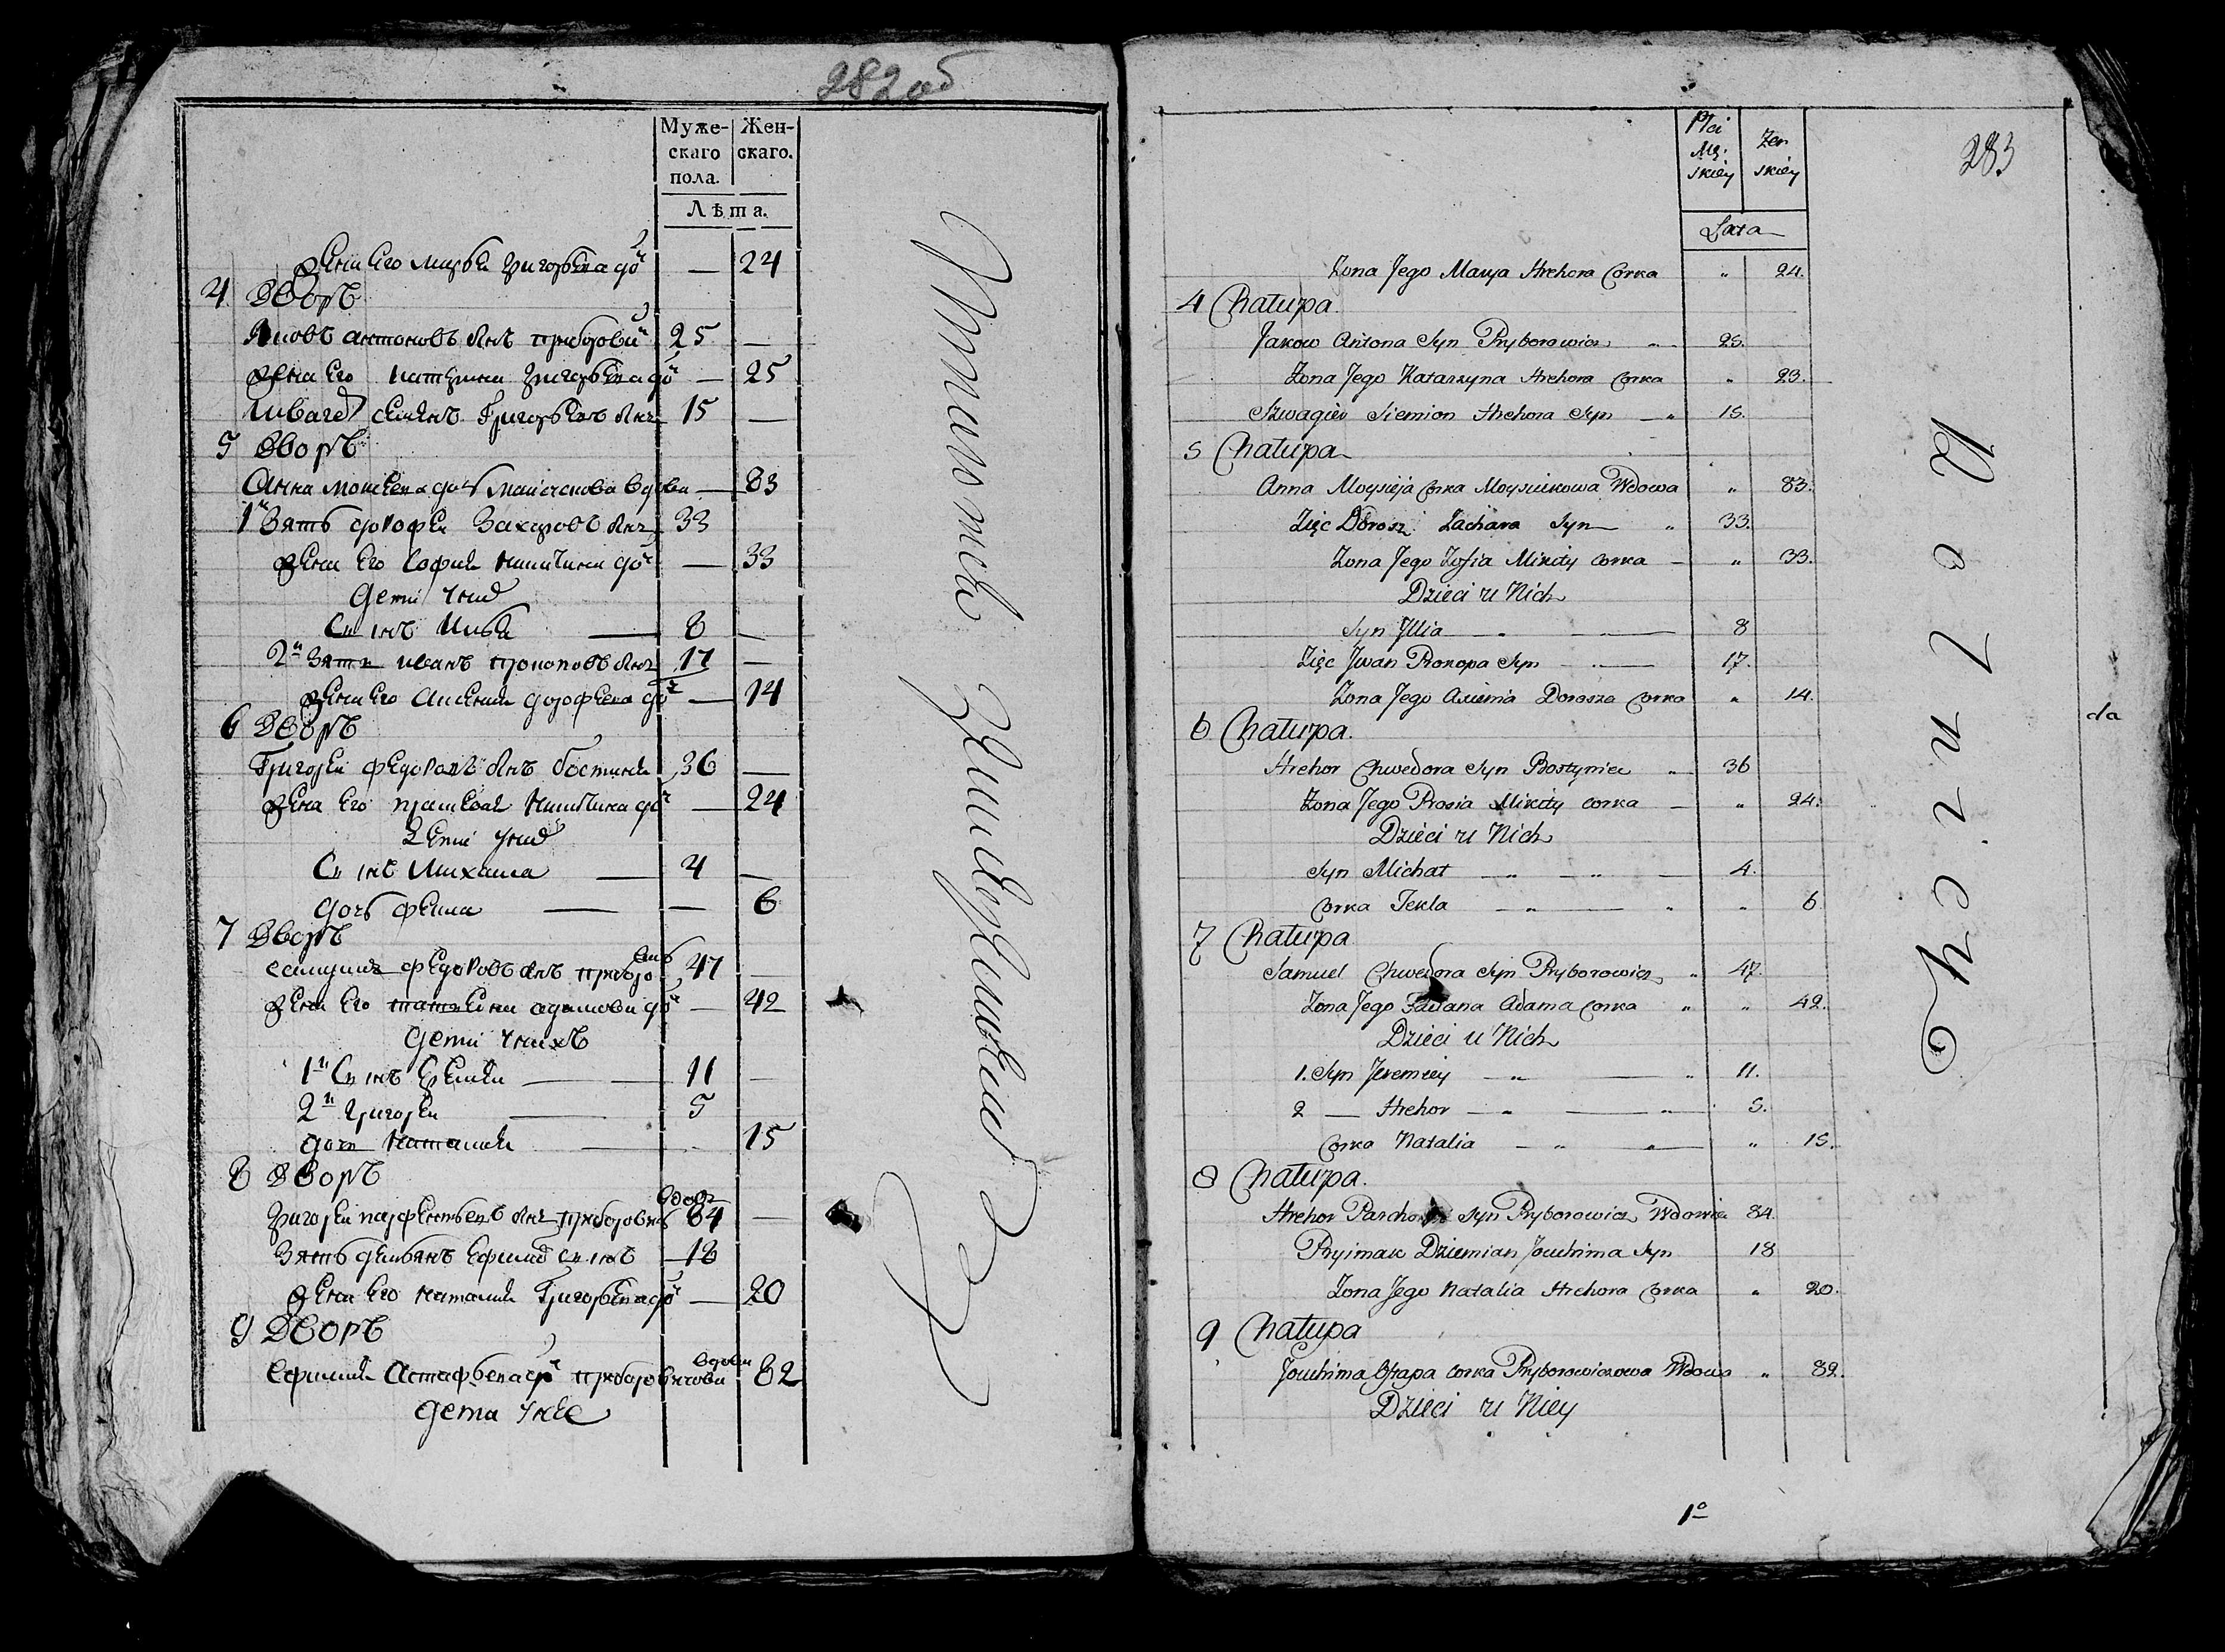 282 об
Муже-
скаго
пола.
Жен-
скаго.
Лѣта.
жена Его Марья Григорьева до⁠ч 24
4 Дворъ
Яковъ Антоновъ Сынъ прибрович 25 —
жена Его Катерина Григорьева доч — 25
Швагер Семенъ Григорьевъ Сынъ 15 —
5 Дворъ
Анна Моисеева доч вдова — 83
1й Зять дорофеи Захаровъ Сынъ 33
жена Его София Никитина доч — 33
Дети У них
Сынъ Илья — 8 —
2й Зять иванъ прокоповъ Сынъ 17 —
жена Его Аксения дорофеева доч — 14
6 Дворъ
Григореи федоровъ Сынъ 36 —
жена Его Никитина доч — 24
Дети У них
Сынъ Михаила — 4 —
дочь фекла — — 6
7 Дворъ
Самуила федоровъ Сынъ 47 —
жена Его татьяна адамова доч — 42
Дети У нихъ
1й Сынъ Еремеи — 11 —
2й Григореи — 5
дочь Наталия — 15
8 Дворъ
Григореи парфеньевъ Сынъ прибрович вдовец 84 —
Зять демьянъ Ефима Сынъ — 18
жена Его Наталия Григорьева доч — 20
9 Дворъ
Ефимия Астафьева доч вдова 82
Дети У нее
283
Płci
Mę:
skiey
Żeń
skiey
Lata
Żona Jego Marya Hrehora Corka „ 24.
4 Chałupa.
Jakow Antona Syn Pryborowicz „ 25.
Żona Jego Katarzyna Hrehora Corka „ 23.
Szwagier Siemion Hrehora Syn — „ 15.
5 Chałupa
Anna Moysieja Corka Moysiukowa Wdowa „ 83.
Zięc Dorosz Zachara Syn „ 33.
Żona Jego Zofia Mikity Corka — „ 33.
Dzieci u Nich
Syn Jllia — „ — 8
Zięc Jwan Prokopa Syn — 17.
Żona Jego Axienia Dorosza Corka „ 14.
6 Chałupa.
Hrehor Chwedora Syn Bostyniec „ 36
Żona Jego Prosia Mikity Corka — „ 24.
Dzieci u Nich
Syn Michał — „ — „ — 4.
Corka Tekla — „ — „ „ 6
7 Chałupa
Samuel Chwedora Syn Pryborowicz „ 47.
Żona Jego Adama Corka „ „ 42.
Dzieci u Nich
1. Syn Jeremiey — „ — „ 11.
2 — Hrehor — „ — „ 5.
Corka Natalia — „ „ — „ 15.
8 Chałupa.
Hrehor Syn Pryborowicz Wdowiec 84.
Pryimak Dziemian Jouchima Syn 18
Żona Jego Natalia Hrehora Corka „ 20.
9 Chałupa
Jouchima Corka Pryborowiczowa Wdowa „ 82.
Dzieci u Niey
1º
da